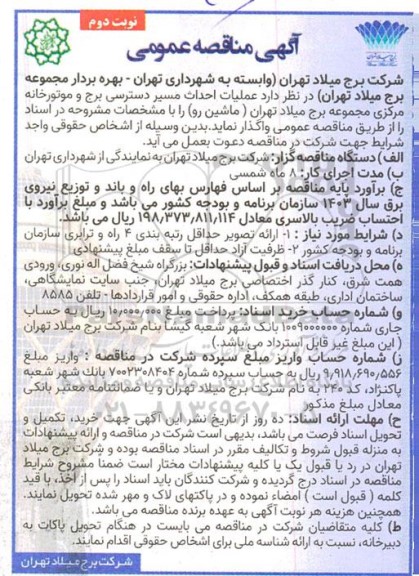 نوبت دوم
آگهی مناقصه عمومی
شرکت برج میلاد تهران (وابسته به شهرداری تهران - بهره بردار مجموعه
برج میلاد تهران) در نظر دارد عملیات احداث مسیر دسترسی برج و موتورخانه
مرکزی مجموعه برج میلاد تهران (ماشین رو) را با مشخصات مشروحه در اسناد
را از طریق مناقصه عمومی واگذار نماید. بدین وسیله از اشخاص حقوقی واجد
شرایط جهت شرکت در مناقصه دعوت بعمل می آید.
الف) دستگاه مناقصه گزار: شرکت برج میلاد تهران به نمایندگی از شهرداری تهران
ب) مدت اجرای کار: ۸ ماه شمسی
ج) برآورد پایه مناقصه بر اساس فهارس بهای راه و باند و توزیع نیروی
برق سال ۱۴۰۳ سازمان برنامه و بودجه کشور می باشد و مبلغ برآورد با
احتساب ضریب بالاسری معادل ۱۹۸٬۳۷۳٬۸۱۱٬۱۱۴ ریال می باشد.
د) شرایط مورد نیاز : ۱- ارائه تصویر حداقل رتبه بندی ۴ راه و ترابری سازمان
برنامه و بودجه کشور ۲- ظرفیت آزاد حداقل تا سقف مبلغ پیشنهادی
ه) محل دریافت اسناد و قبول پیشنهادات: بزرگراه شیخ فضل اله نوری، ورودی
همت شرق، کنار گذر اختصاصی برج میلاد تهران، جنب سایت نمایشگاهی،
ساختمان اداری، طبقه همکف، اداره حقوقی و امور قراردادها - تلفن ۸۵۸۵
و) شماره حساب خرید اسناد: پرداخت مبلغ ۱۰٬۰۰۰٬۰۰۰ ریال به حساب
جاری شماره ۱۰۰۹۰۰۰۰۰۰ بانک شهر شعبه گیشا بنام شرکت برج میلاد تهران
( این مبلغ غیر قابل استرداد می باشد.)
ز) شماره حساب واریز مبلغ سپرده شرکت در مناقصه : واریز مبلغ
۹٬۹۱۸٬۶۹۰٬۵۵۶ ریال به حساب سپرده شماره ۷۰۰۲۳۰۸۴۰۴ بانک شهر شعبه
پاکنژاد، کد ۲۴۰ به نام شرکت برج میلاد تهران و یا ضمانتنامه معتبر بانکی
معادل مبلغ مذکور
ح) مهلت ارائه اسناد: ده روز از تاریخ نشر این آگهی جهت خرید، تکمیل و
تحویل اسناد فرصت می باشد، بدیهی است شرکت در مناقصه و ارائه پیشنهادات
به منزله قبول شروط و تکالیف مقرر در اسناد مناقصه بوده و شرکت برج میلاد
تهران در رد یا قبول یک یا کلیه پیشنهادات مختار است ضمناً مشروح شرایط
مناقصه در اسناد درج گردیده و شرکت کنندگان باید اسناد را پس از اخذ، با قید
کلمه ( قبول است ) امضاء نموده و در پاکتهای لاک و مهر شده تحویل نمایند.
همچنین هزینه هر نوبت آگهی به عهده برنده مناقصه می باشد.
ط) کلیه متقاضیان شرکت در مناقصه می بایست در هنگام تحویل پاکات به
دبیرخانه، نسبت به ارائه شناسه ملی برای اشخاص حقوقی اقدام نمایند.
شرکت برج میلاد تهران